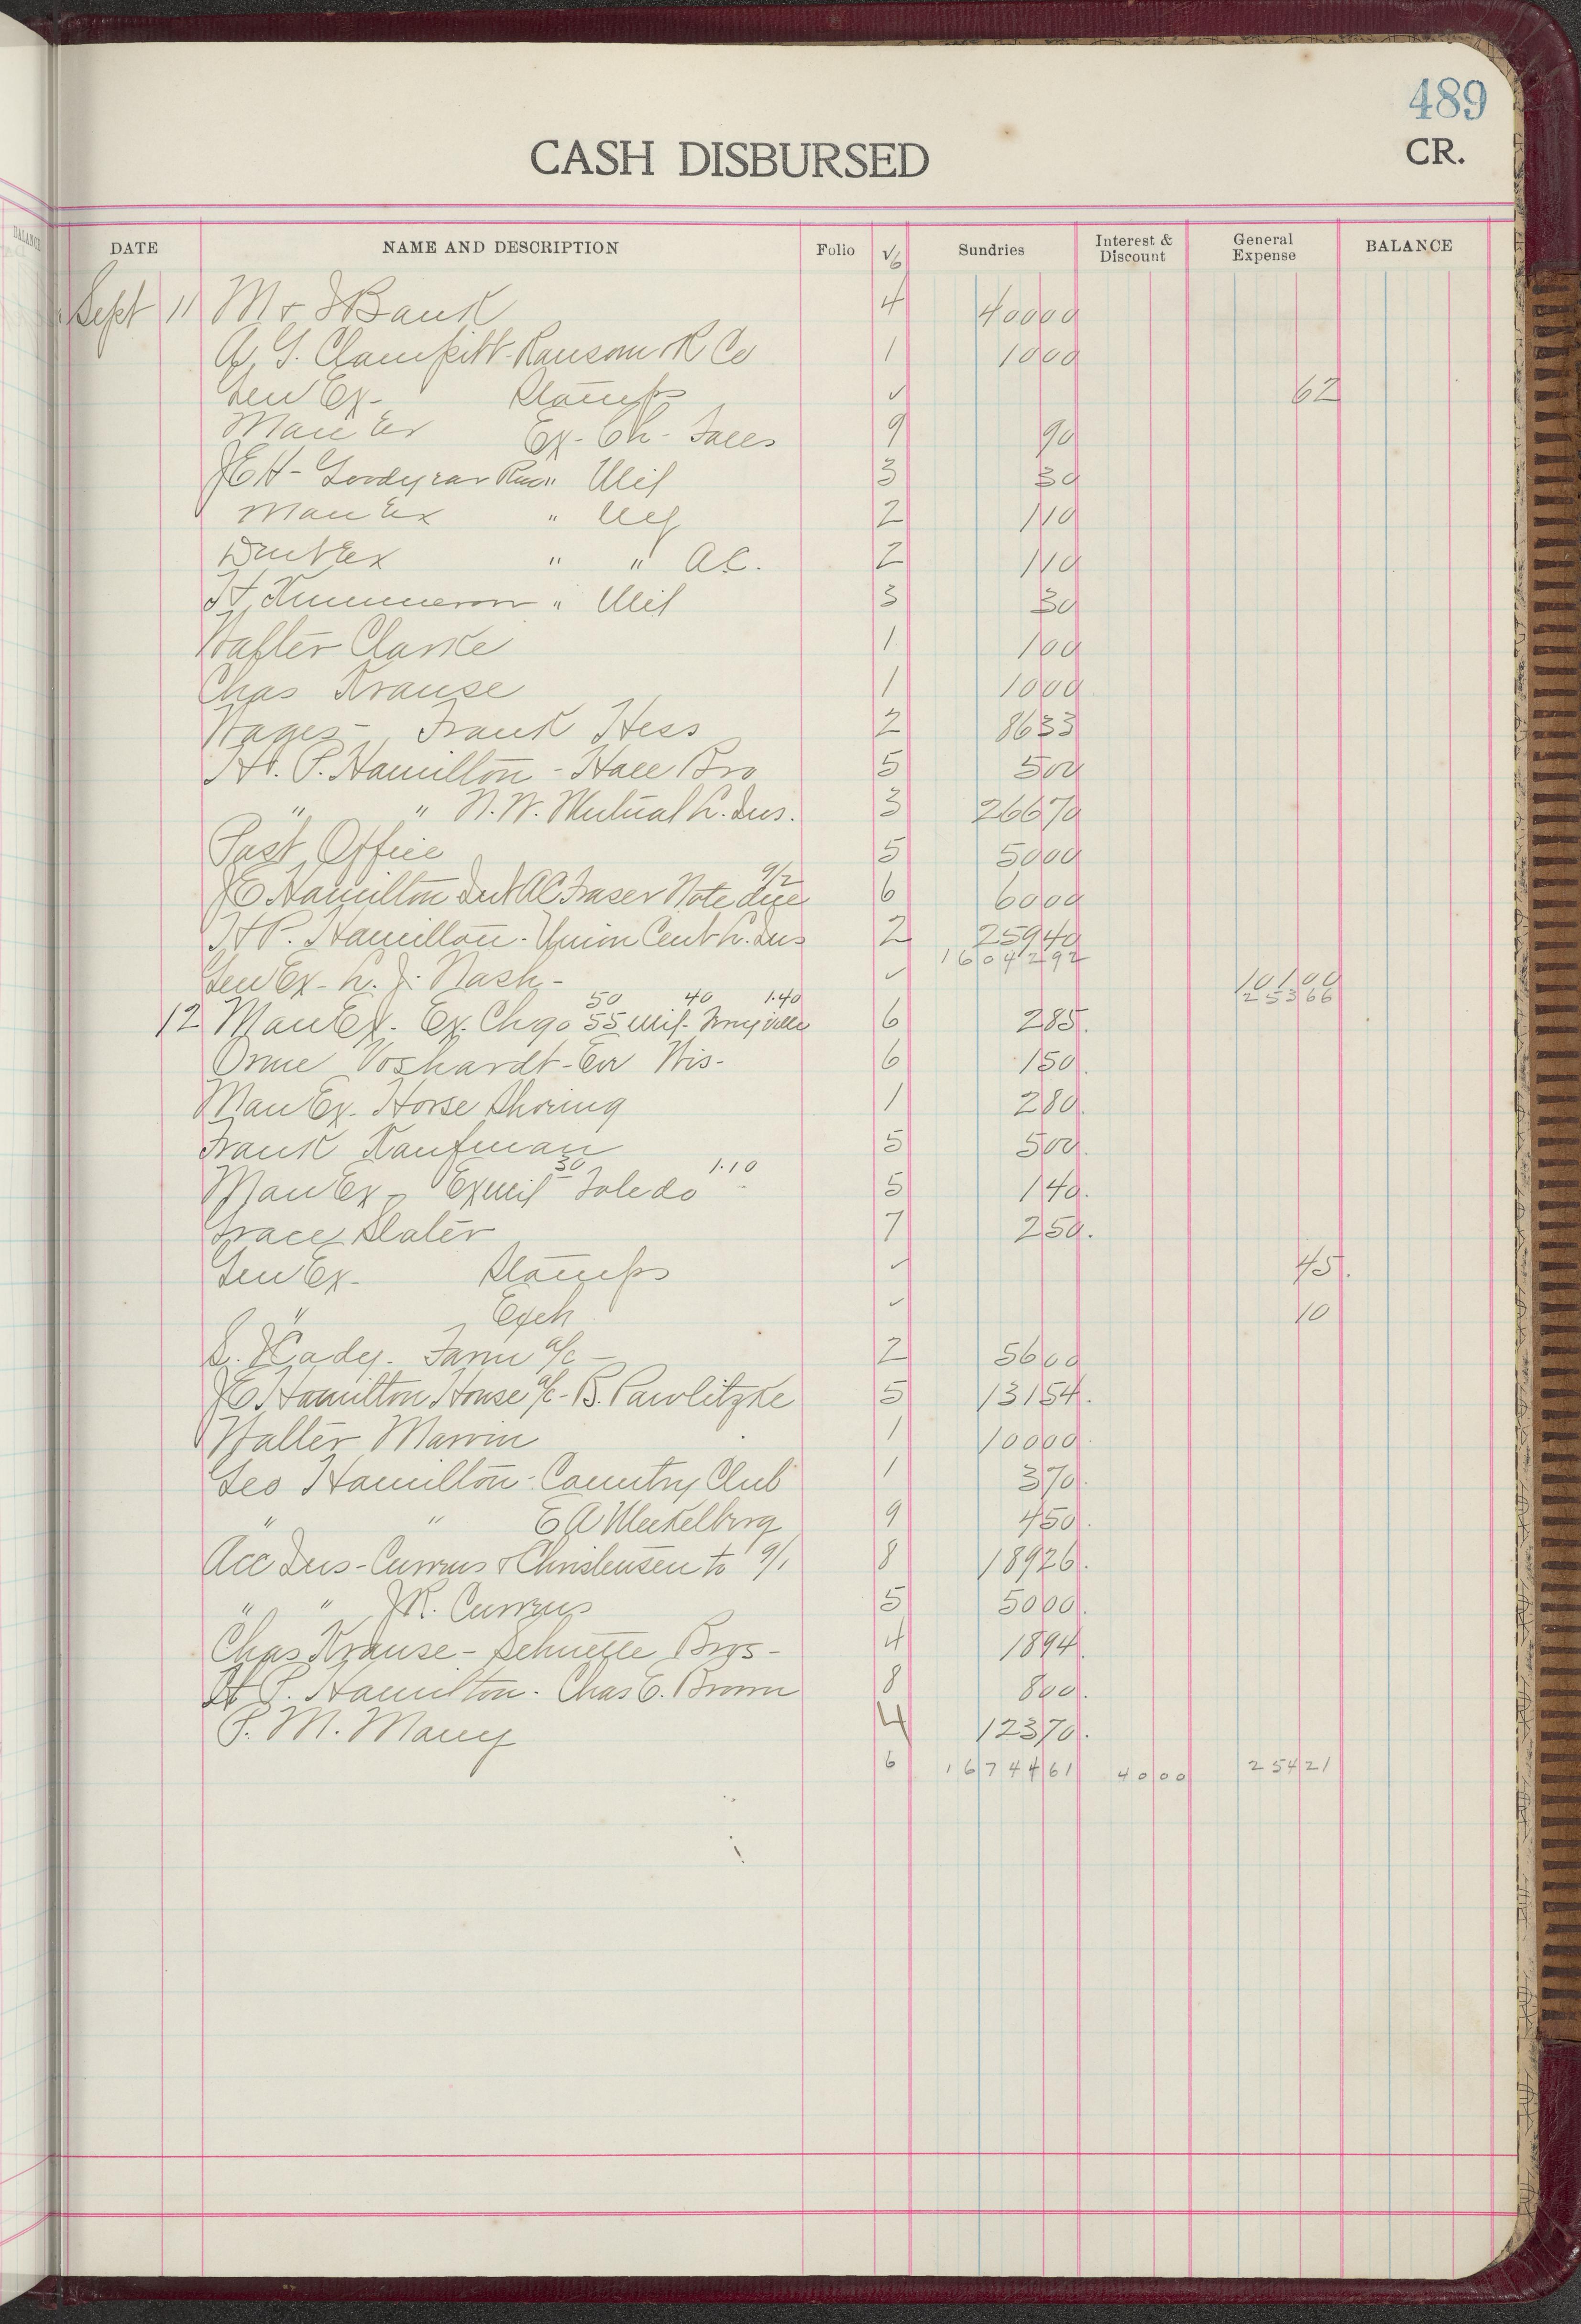 489
CASH DISBURSED CR.
BALANCE
DATE NAME AND DESCRIPTION Folio √6 Sundries Interest & Discount General Expense BALANCE
Sept 11 M & J Bank 4 40000
A. G. Clampitt - Ransom R Co 1 1000
Gen Ex - Stamps ✓ 62
Man Ex Ex - Ch - 9 90
JEH - Goodyear " Mil 3 30
Man Ex " 2 110
" " AC. 2 110
H. " Mil 3 30
Walter Clarke 1 100
Chas Krause 1 1000
Wages - Frank Hess 2 8633
H. P. Hamilton - Hall Bro 5 500
" " N. W. Mutual L. Ins. 3 26670
Post Office 5 5000
9/2
JE Hamilton Int AC Fraser Note due 6 6000
H P. Hamilton - Union Cent L. Ins 2 25940
1604292
Gen Ex - L. J. Nash - ✓ 10100
25366
50 40 1.40
12 Man Ex. Ex. Chgo 55 Mil - 6 285.
Orme Voshardt - Wis - 6 150.
Man Ex. Horse Shoeing 1 280.
Frank Kaufman 5 500.
30 1.10
Man Ex - Ex Mil Toledo 5 140.
Grace Slater 7 250.
Gen Ex - Stamps ✓ 45.
" Exch ✓ 10
S. J Cady - Farm a/c - 2 5600
JE Hamilton House a/c - B. Pawlitzke 5 13154.
Walter Marvin 1 10000
Geo Hamilton - Country Club 1 370.
" " E A Meckelburg 9 450.
Acc Ins - Currens & Christensen to 9/1 8 18926.
" " J R. Currens 5 5000.
Chas Krause - Schuette Bros - 4 1894.
H P. Hamilton - Chas E. Brown 8 800.
P. M. Many 4 12370.
6 1674461 4000 25421